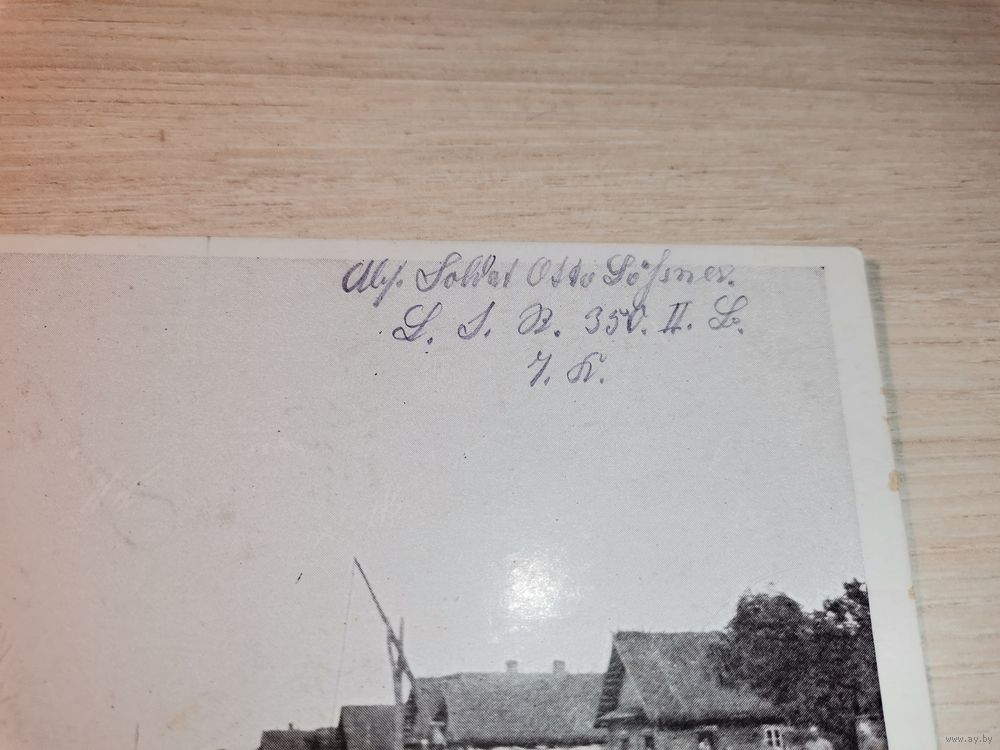 Abs. Soldat Otto Lößner.
L. I. R. 350. II. B.
7. K.
www.ay.by